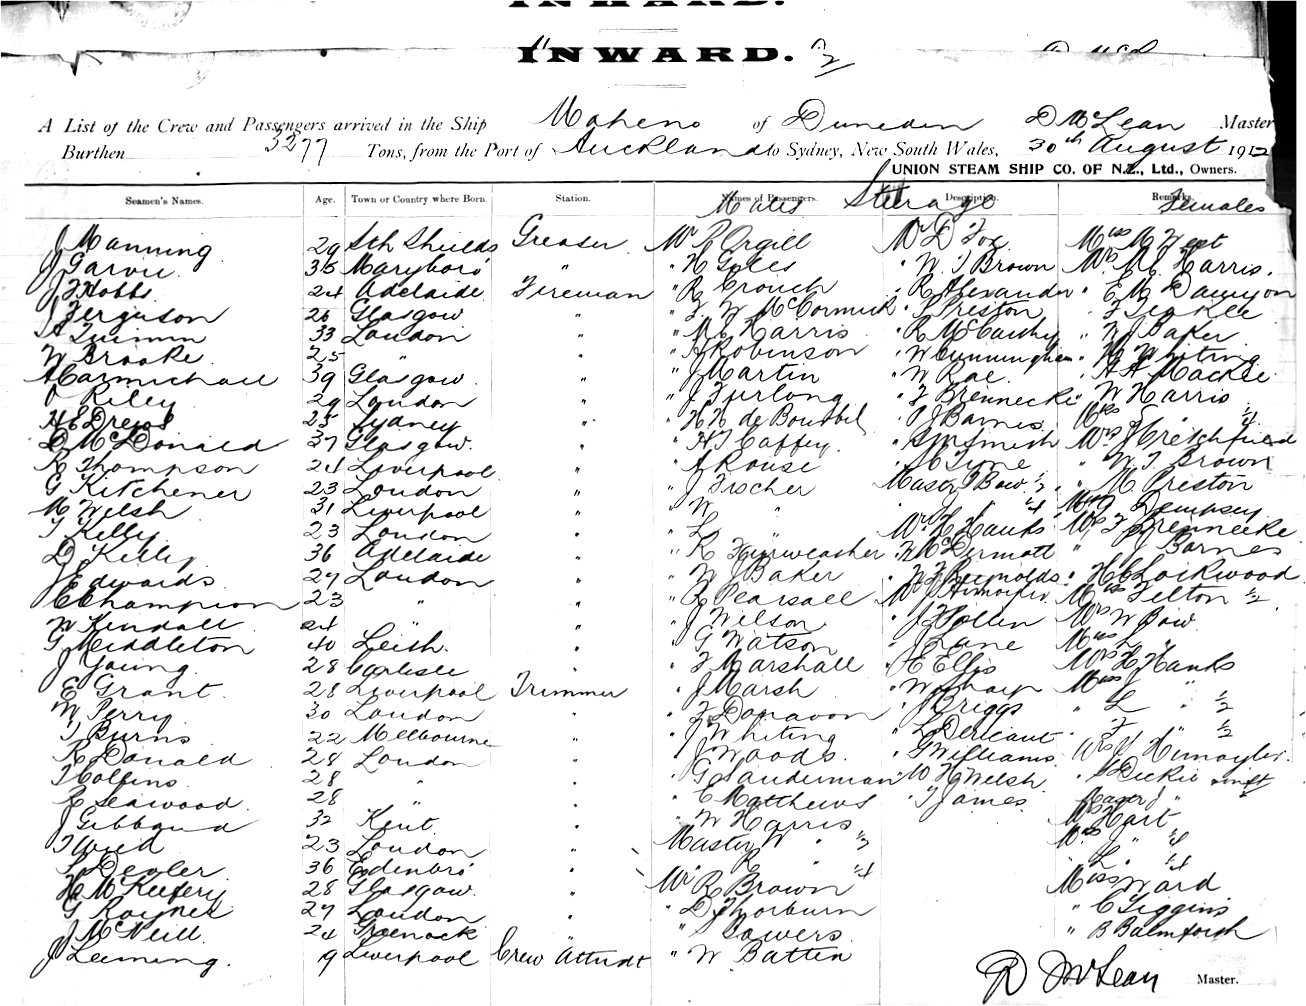 INWARD.
INWARD. 2
A List of the Crew and Passengers arrived in the Ship Maheno of Dunedin D McLean Master
Burthen 3277 Tons, from the Port of Auckland to Sydney, New South Wales, 30th August 1912
UNION STEAM SHIP CO. OF N.Z., Ltd., Owners.
Seamen's Names. Age. Town or Country where Born. Station. Names of Passengers. Description. Remarks.
Males Steerage Females
J Manning 29 Sth Shields Greaser Mr R Orgill Mr D Fox Miss M West
J Garvie 35 Maryboro' " " H Giles " W J Brown Mrs M J Harris.
J F Hobbs 24 Adelaide Fireman " R Crouch " R Alexander " E M Dawson
J Ferguson 26 Glasgow " " F W McCormick " T Preston "
A Quinn 33 London " " M Harris " R McCarthy " W J Baker
W Brooke 25 " " " A Robinson " W Cunningham " H Whiting
A Carmichael 39 Glasgow " " J Martin " W Rae " A A Mackie
J Riley 29 London " " J Furlong " F Brennecke " W Harris
H E Drews 25 Sydney " " H H de Bourbel " P J Barnes Miss " 1/4
D McDonald 37 Glasgow " " H J Caffey " Smith Mrs J Kretchfield
R Thompson 24 Liverpool " " A Rouse " Tyne " W J Brown
G Kitchener 23 London " " J Fischer Master J Bow 1/2 " M Preston
M Welsh 31 Liverpool " " W " " " 1/4 Dempsey
T Kelly 23 London " " L " Mr H Hanks Mrs F Brennecke
D Kelly 36 Adelaide " " R " McDermott " J Barnes
J Edwards 27 London " " W J Baker " Reynolds " H C Lockwood
E Champion 23 " " " R Pearsall Mr J Miss Felton 1/2
W Kendall 24 " " " J Wilson " J Hollin Mrs W Bow
G Middleton 40 Leith " " G Watson " J Lane Miss "
J Young 28 Carlisle " " F Marshall " E Ellis Mrs H Hanks
E Grant 28 Liverpool Trimmer " J Marsh " W Sharp Miss "
W Perry 30 London " " F Donavon " J Briggs " L " 1/2
T Burns 22 Melbourne " " J Whiting " L " F " 1/2
R Donald 28 London " " J Woods " G Williams Mrs J
T Collins 28 " " " G Sanderman W H Welsh " J Dickie
R Seawood 28 " " " E Matthews " T James Master J "
J Gibbard 32 Kent " " W Harris Mrs Hart
T Weed 23 London " Master W " 1/2 Miss " 1/4
L Dealer 36 Edinbro' " R " 1/4 " L " 1/4
H McKeefery 28 Glasgow " Mr R Brown Miss Ward
G Rayner 27 London " " D Thorburn " C Liggins
J McNeill 24 Greenock " " Sowers " B Balmforth
J Leeming 19 Liverpool Crew Attendt " W Batten
D McLean Master.